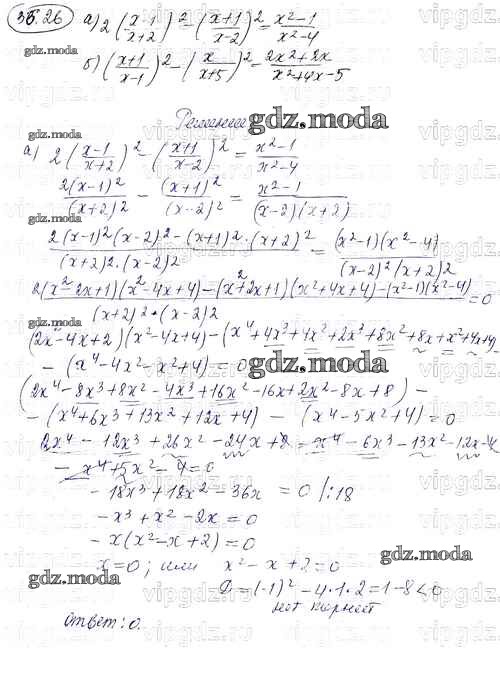 36.26 a) 2((x-1)/(x+2))² - ((x+1)/(x-2))² = (x²-1)/(x²-4)
gdz.moda
б) ((x+1)/(x-1))² - (x/(x+5))² = (2x²+2x)/(x²+4x-5)
Решение
gdz.moda
gdz.moda
a) 2((x-1)/(x+2))² - ((x+1)/(x-2))² = (x²-1)/(x²-4)
2(x-1)²/(x+2)² - (x+1)²/(x-2)² = (x²-1)/((x-2)(x+2))
gdz.moda
(2(x-1)²(x-2)² - (x+1)²·(x+2)²)/((x+2)²·(x-2)²) = (x²-1)(x²-4)/((x-2)²(x+2)²)
gdz.moda
(2(x²-2x+1)(x²-4x+4) - (x²+2x+1)(x²+4x+4) - (x²-1)(x²-4))/((x+2)²·(x-2)²) = 0
(2x²-4x+2)(x²-4x+4) - (x⁴+4x³+4x²+2x³+8x²+8x+x²+4x+4)
- (x⁴-4x²-x²+4) = 0
gdz.moda
(2x⁴-8x³+8x²-4x³+16x²-16x+2x²-8x+8) -
- (x⁴+6x³+13x²+12x+4) - (x⁴-5x²+4) = 0
2x⁴-12x³+26x²-24x+8-x⁴-6x³-13x²-12x-4
- x⁴+5x²-4=0
gdz.moda
-18x³+18x²-36x = 0 /:18
-x³+x²-2x=0
-x(x²-x+2)=0
x=0; или x²-x+2=0
gdz.moda
gdz.moda
D=(-1)²-4·1·2=1-8<0
нет корней
Ответ: 0.
gdz.moda